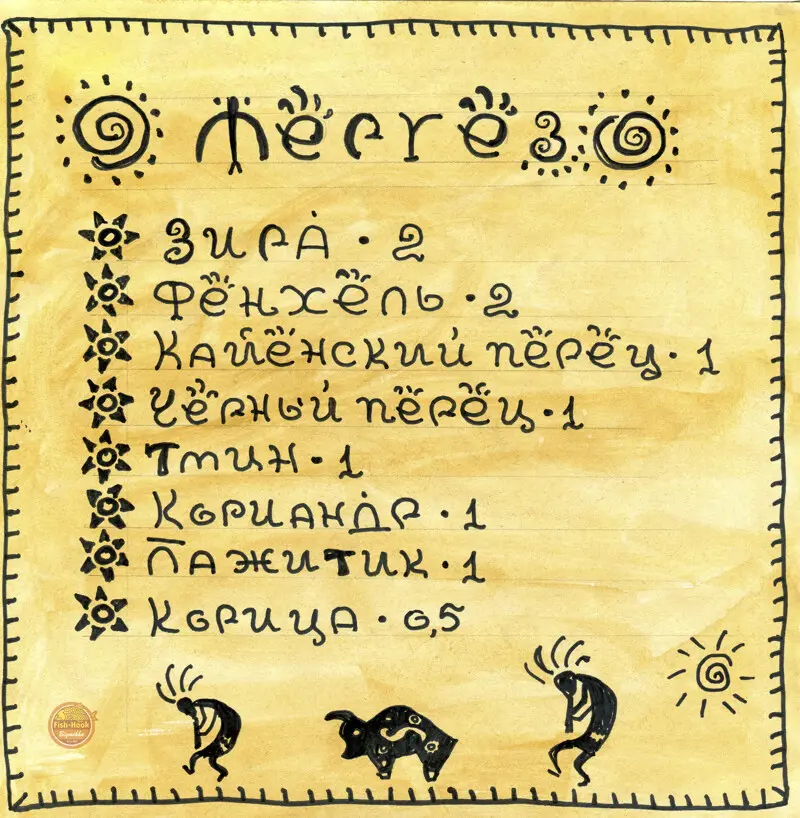 Мергез
Зира · 2
Фенхель · 2
Кайенский перец · 1
Черный перец · 1
Тмин · 1
Кориандр · 1
Пажитик · 1
Корица · 0,5
Fish-Hook